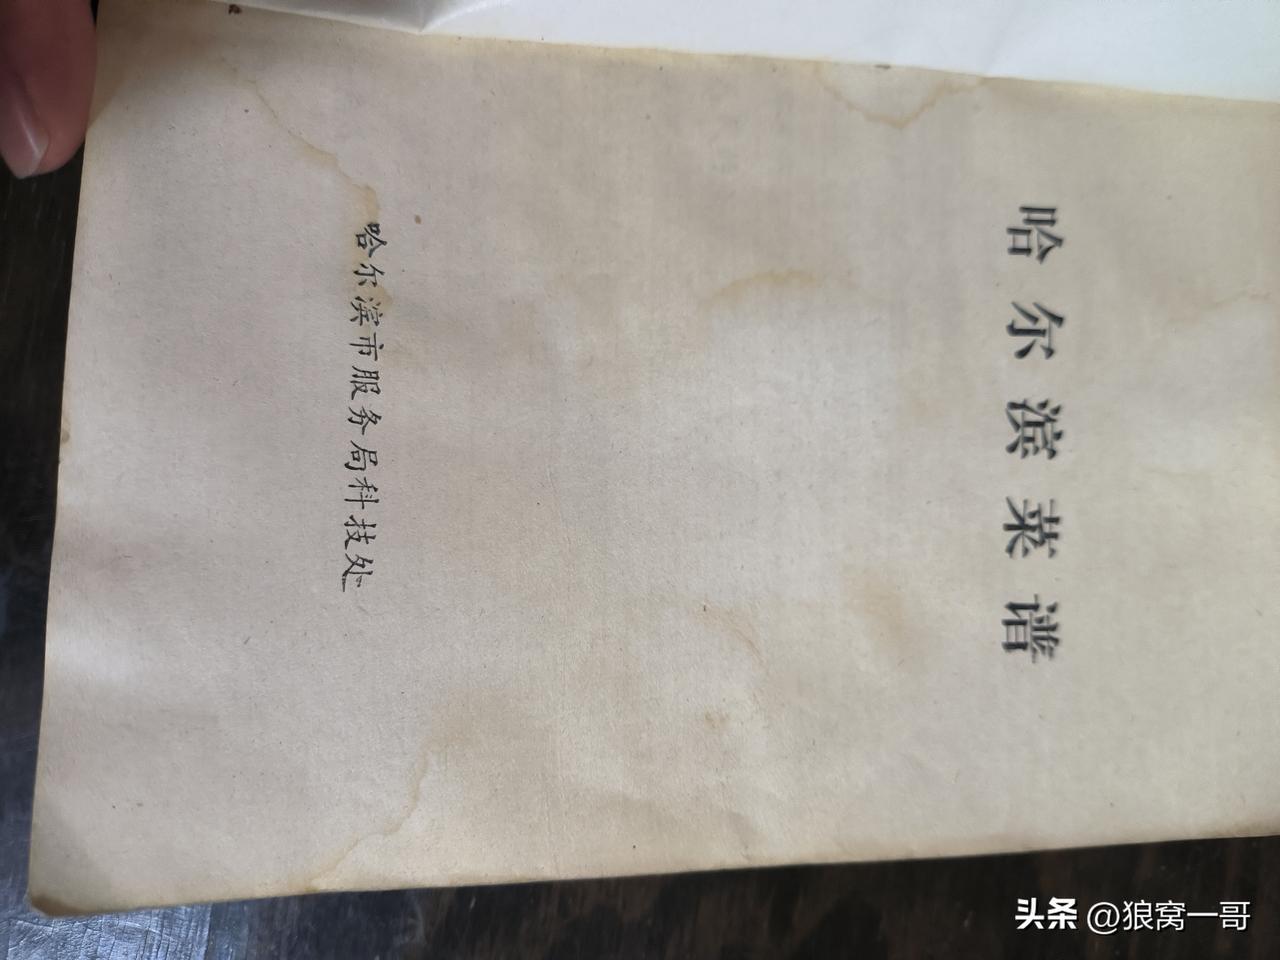 哈尔滨菜谱
哈尔滨市服务局科技处
头条 @狼窝一哥